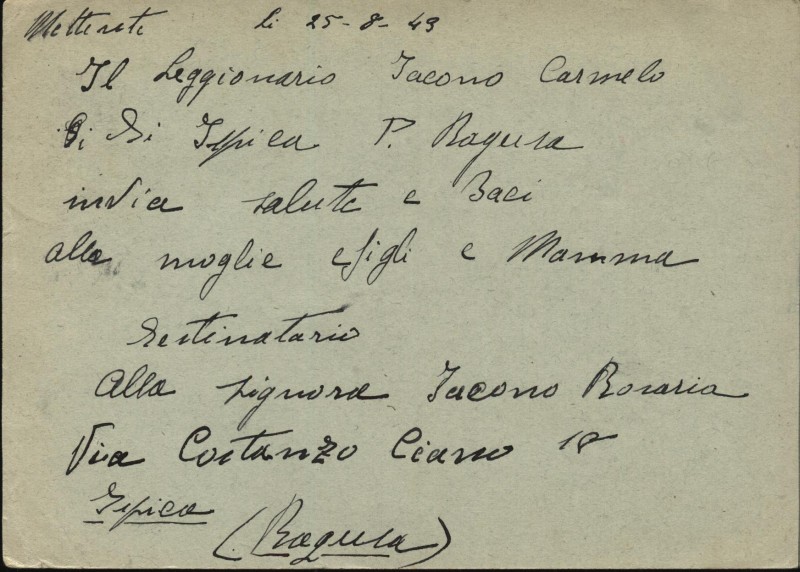 Metterete li 25-8-43
Il Leggionario Iacono Carmelo
Di Ispica P. Ragusa
invia salute e Baci
alla moglie e figli e Mamma
Destinatario
Alla Signora Iacono Rosaria
Via Costanzo Ciano 18
Ispica
(Ragusa)